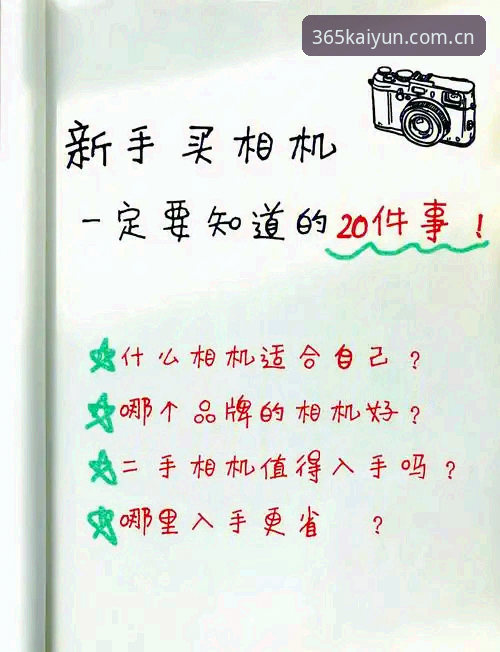 365kaiyun.com.cn
新手买相机
一定要知道的20件事！
什么相机适合自己？
哪个品牌的相机好？
二手相机值得入手吗？
哪里入手更省 ？